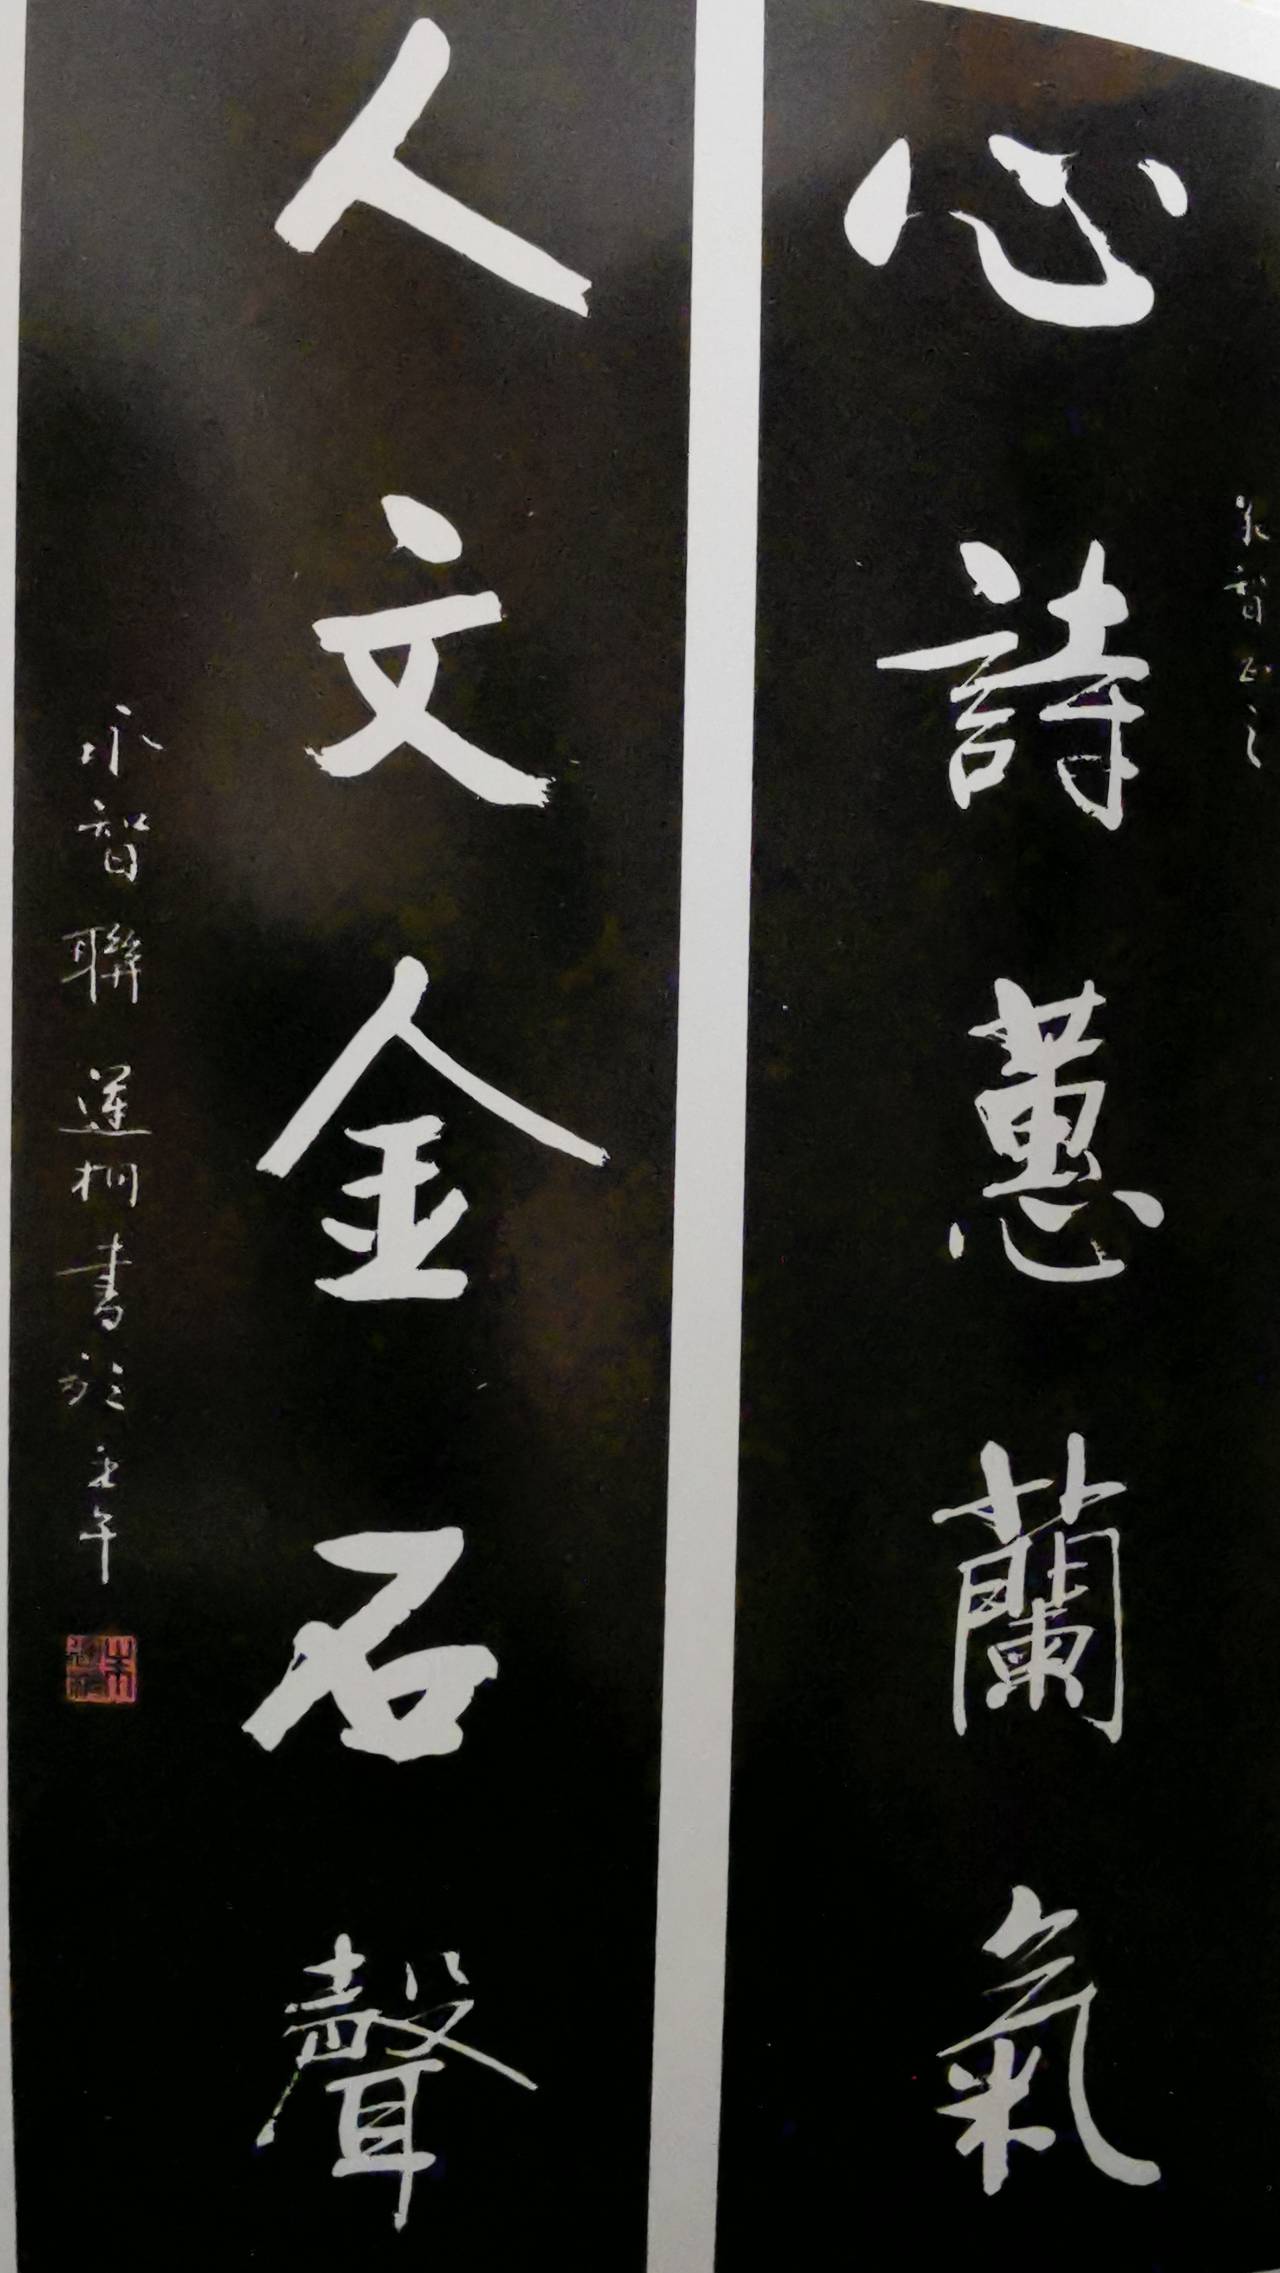 永智正之
心詩蕙蘭氣
人文金石聲
永智聯 蓮桐書於壬午